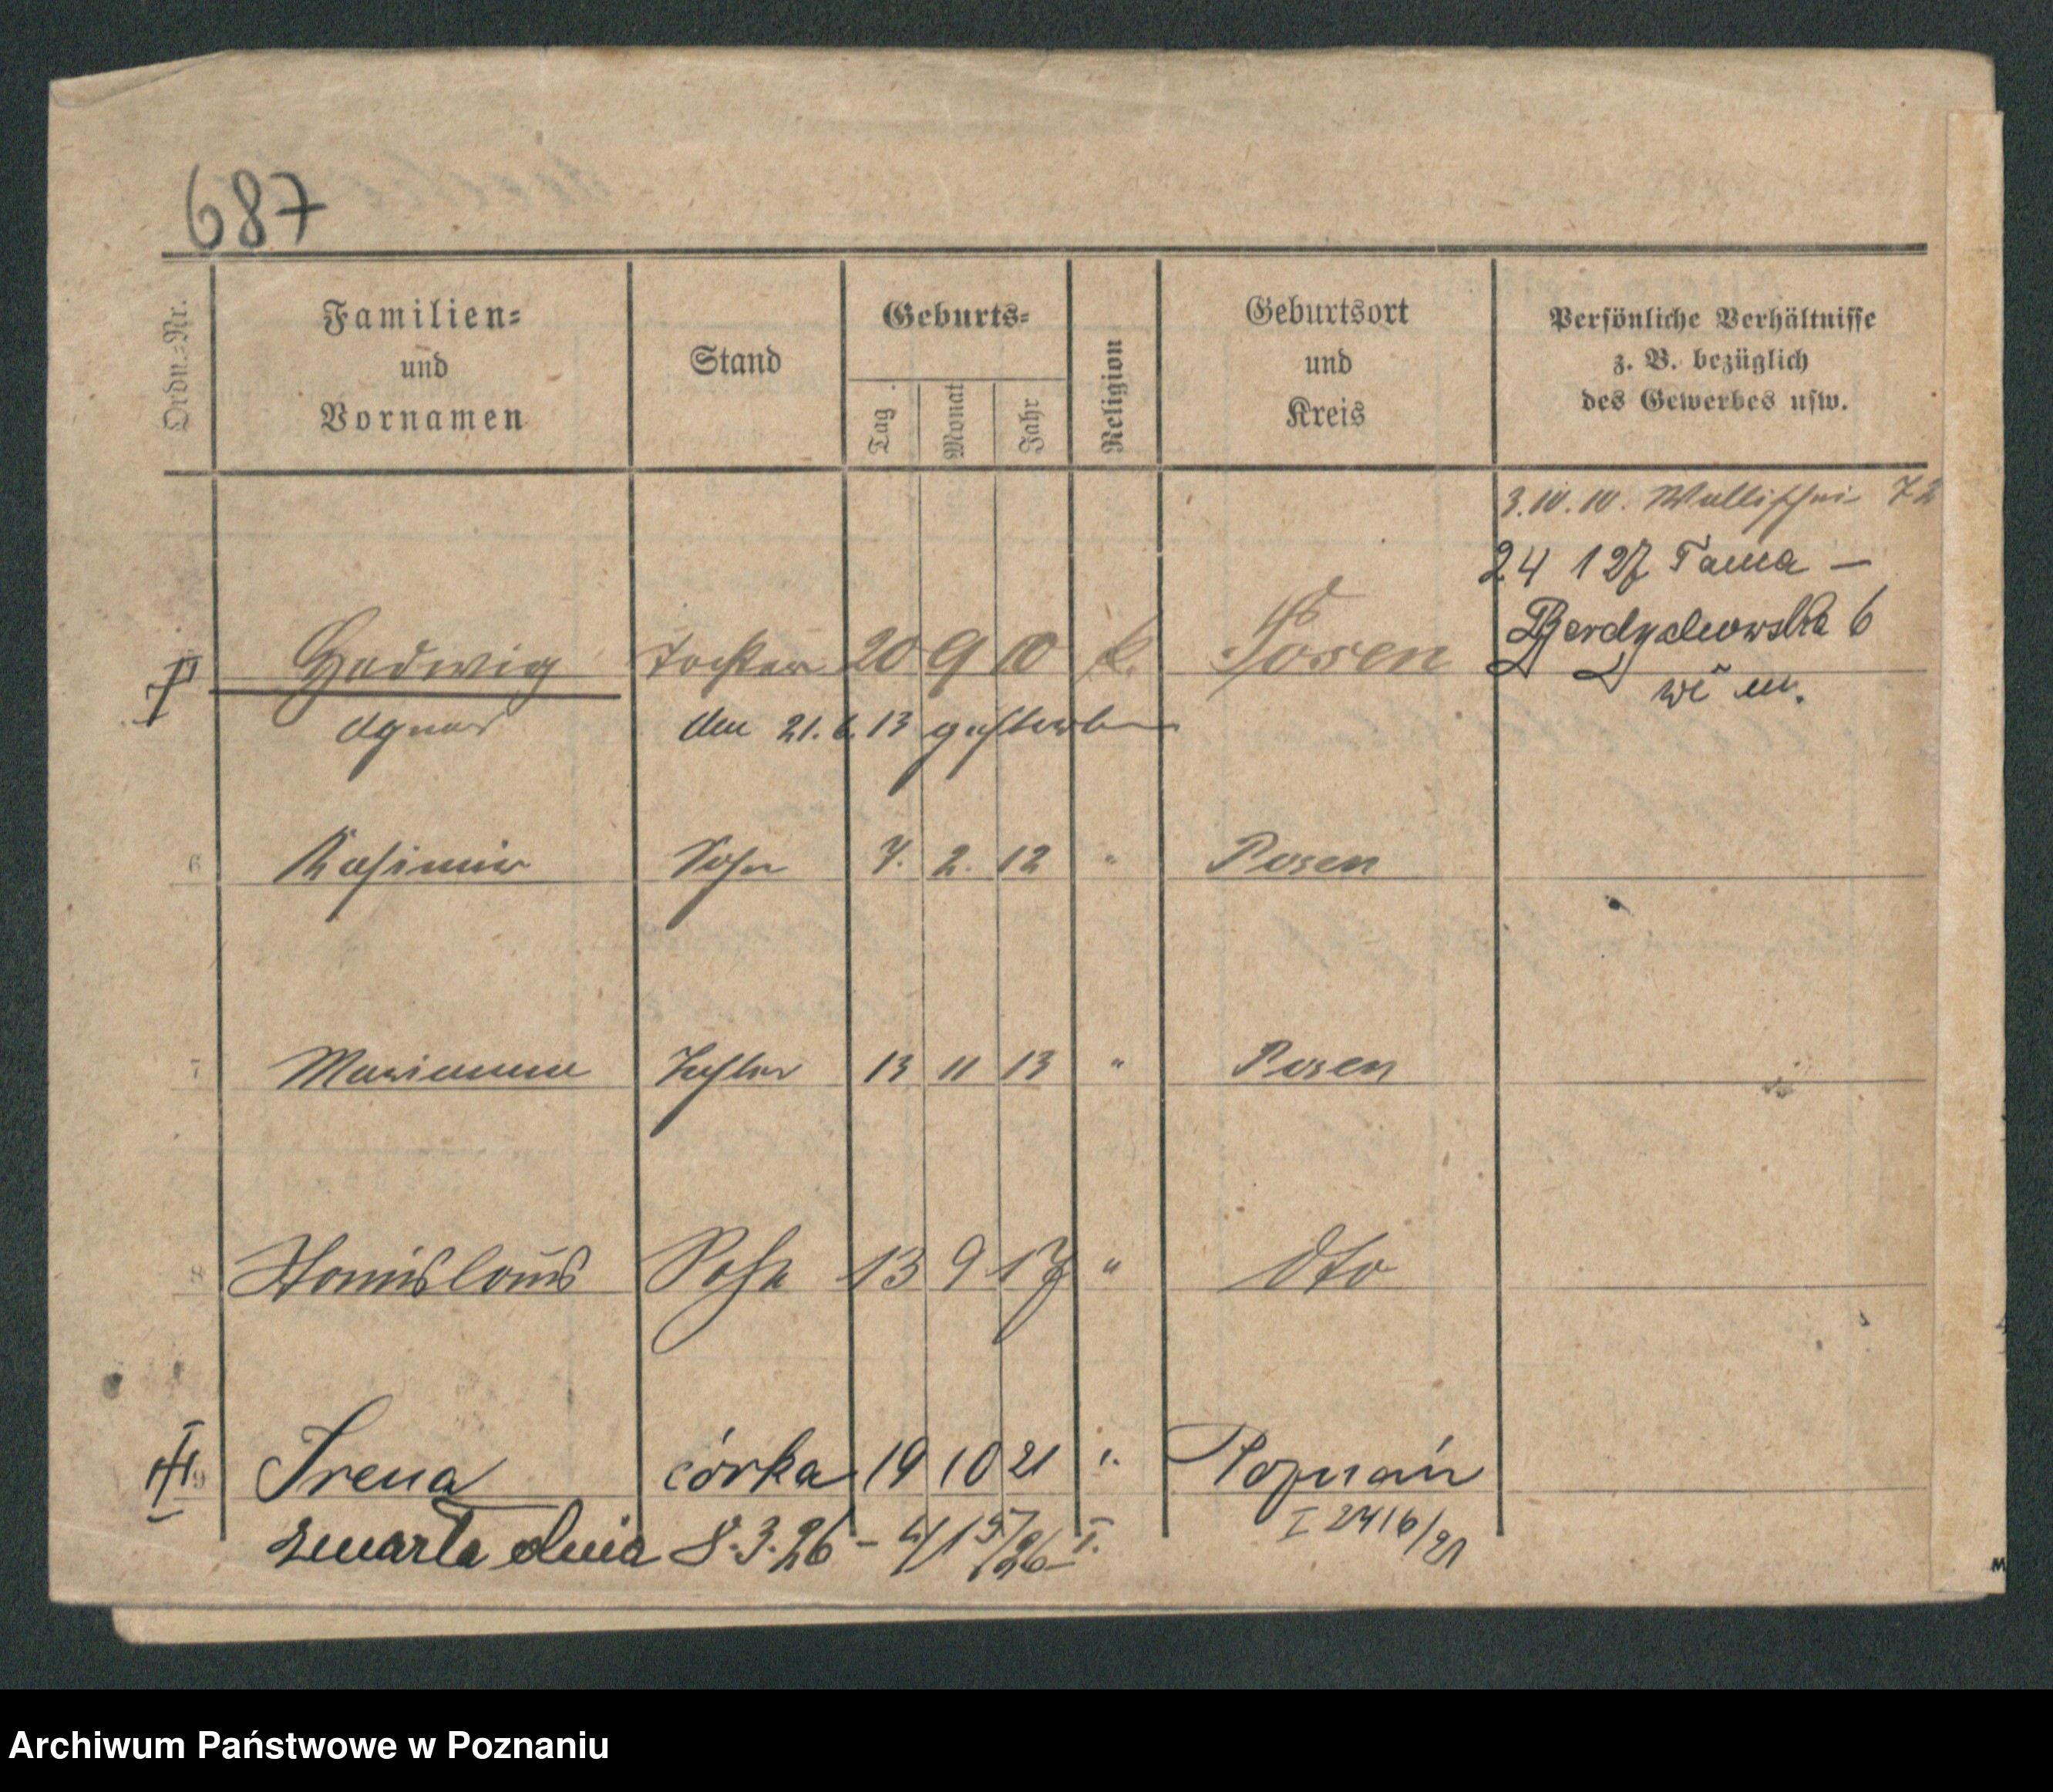 687
Ordn.=Nr.
Familien=
und
Vornamen
Stand
Geburts=
Tag
Monat
Jahr
Religion
Geburtsort
und
Kreis
Persönliche Verhältnisse
z. B. bezüglich
des Gewerbes usw.
3.10.10. Wallischei 72
24 127 Tama —
Berdychowska 6
Hedwig Tochter 20 9 10 k. Posen
Agnes den 21.6.13 gestorben
6 Kasimir Sohn 7. 2. 12 " Posen
7 Marianna Tochter 13 11 13 " Posen
8 Stanislaus Sohn 13 9 17 " dto
9 Irena córka 19 10 21 " Poznań
I 2416/21
zmarła dnia 8.3.26 -
Archiwum Państwowe w Poznaniu